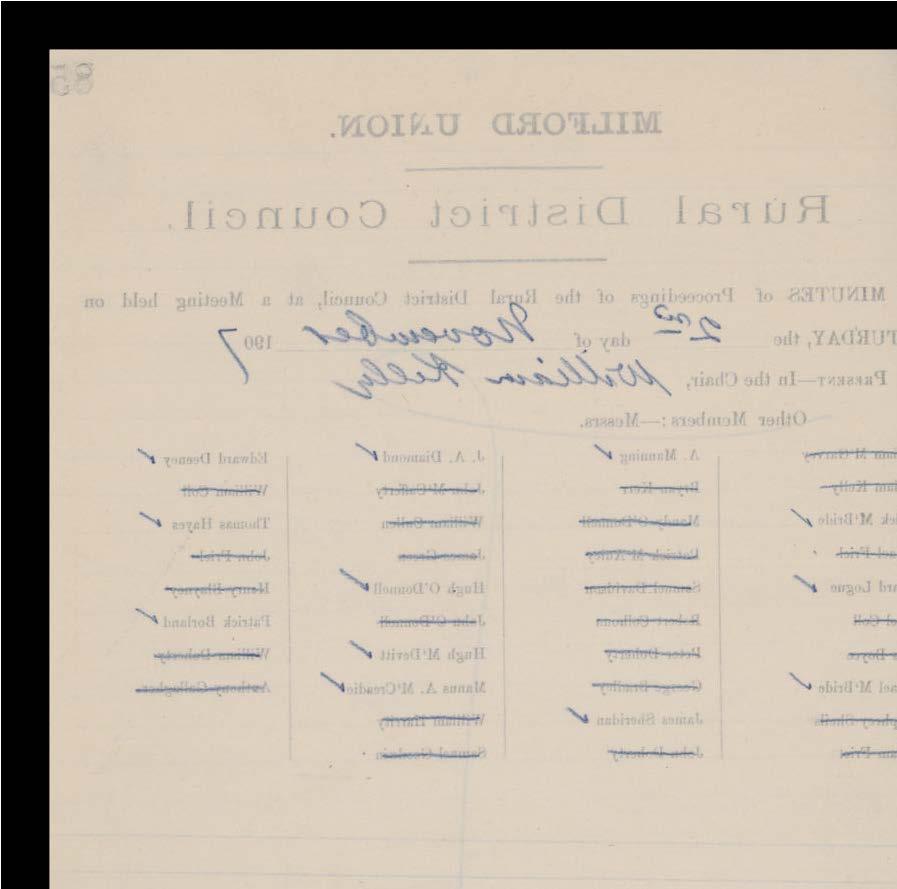 85
MILFORD UNION.
Rural District Council.
MINUTES of Proceedings of the Rural District Council, at a Meeting held on
TURDAY, the 2nd day of November 1907
PRESENT—In the Chair, William Kelly
Other Members:—Messrs.
am M'Garvey A. Manning J. A. Diamond Edward Deeney
am Kelly Bryan Kerr John M'Cafferty William Coll
ck M'Bride Manly O'Donnell William Cullen Thomas Hayes
ael Friel Patrick M'Auley James Geen John Friel
ard Logue Samuel Davidson Hugh O'Donnell Henry Blayney
el Coll Robert Calhoun John O'Donnell Patrick Borland
s Boyce Peter Doherty Hugh M'Devitt William Doherty
ael M'Bride George Bradley Manus A. M'Creadie Anthony Gallagher
phrey Sheils James Sheridan William Hartley
am Friel John Doherty Samuel Goodwin